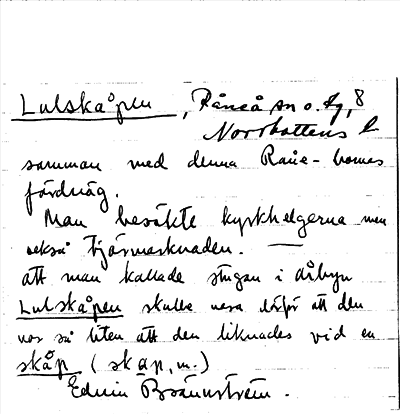 Lulskåpen, Råneå sn o. tg, 8
Norrbottens l
samman med denna Råne-bornes
färdväg.
Man besökte kyrkhelgerna men
också tjärmarknaden. —
att man kallade stugan i åbyn
Lulskåpen skulle vara därför att den
var så liten att den liknades vid en
skåp (skåp, m.)
Edvin Brännström.